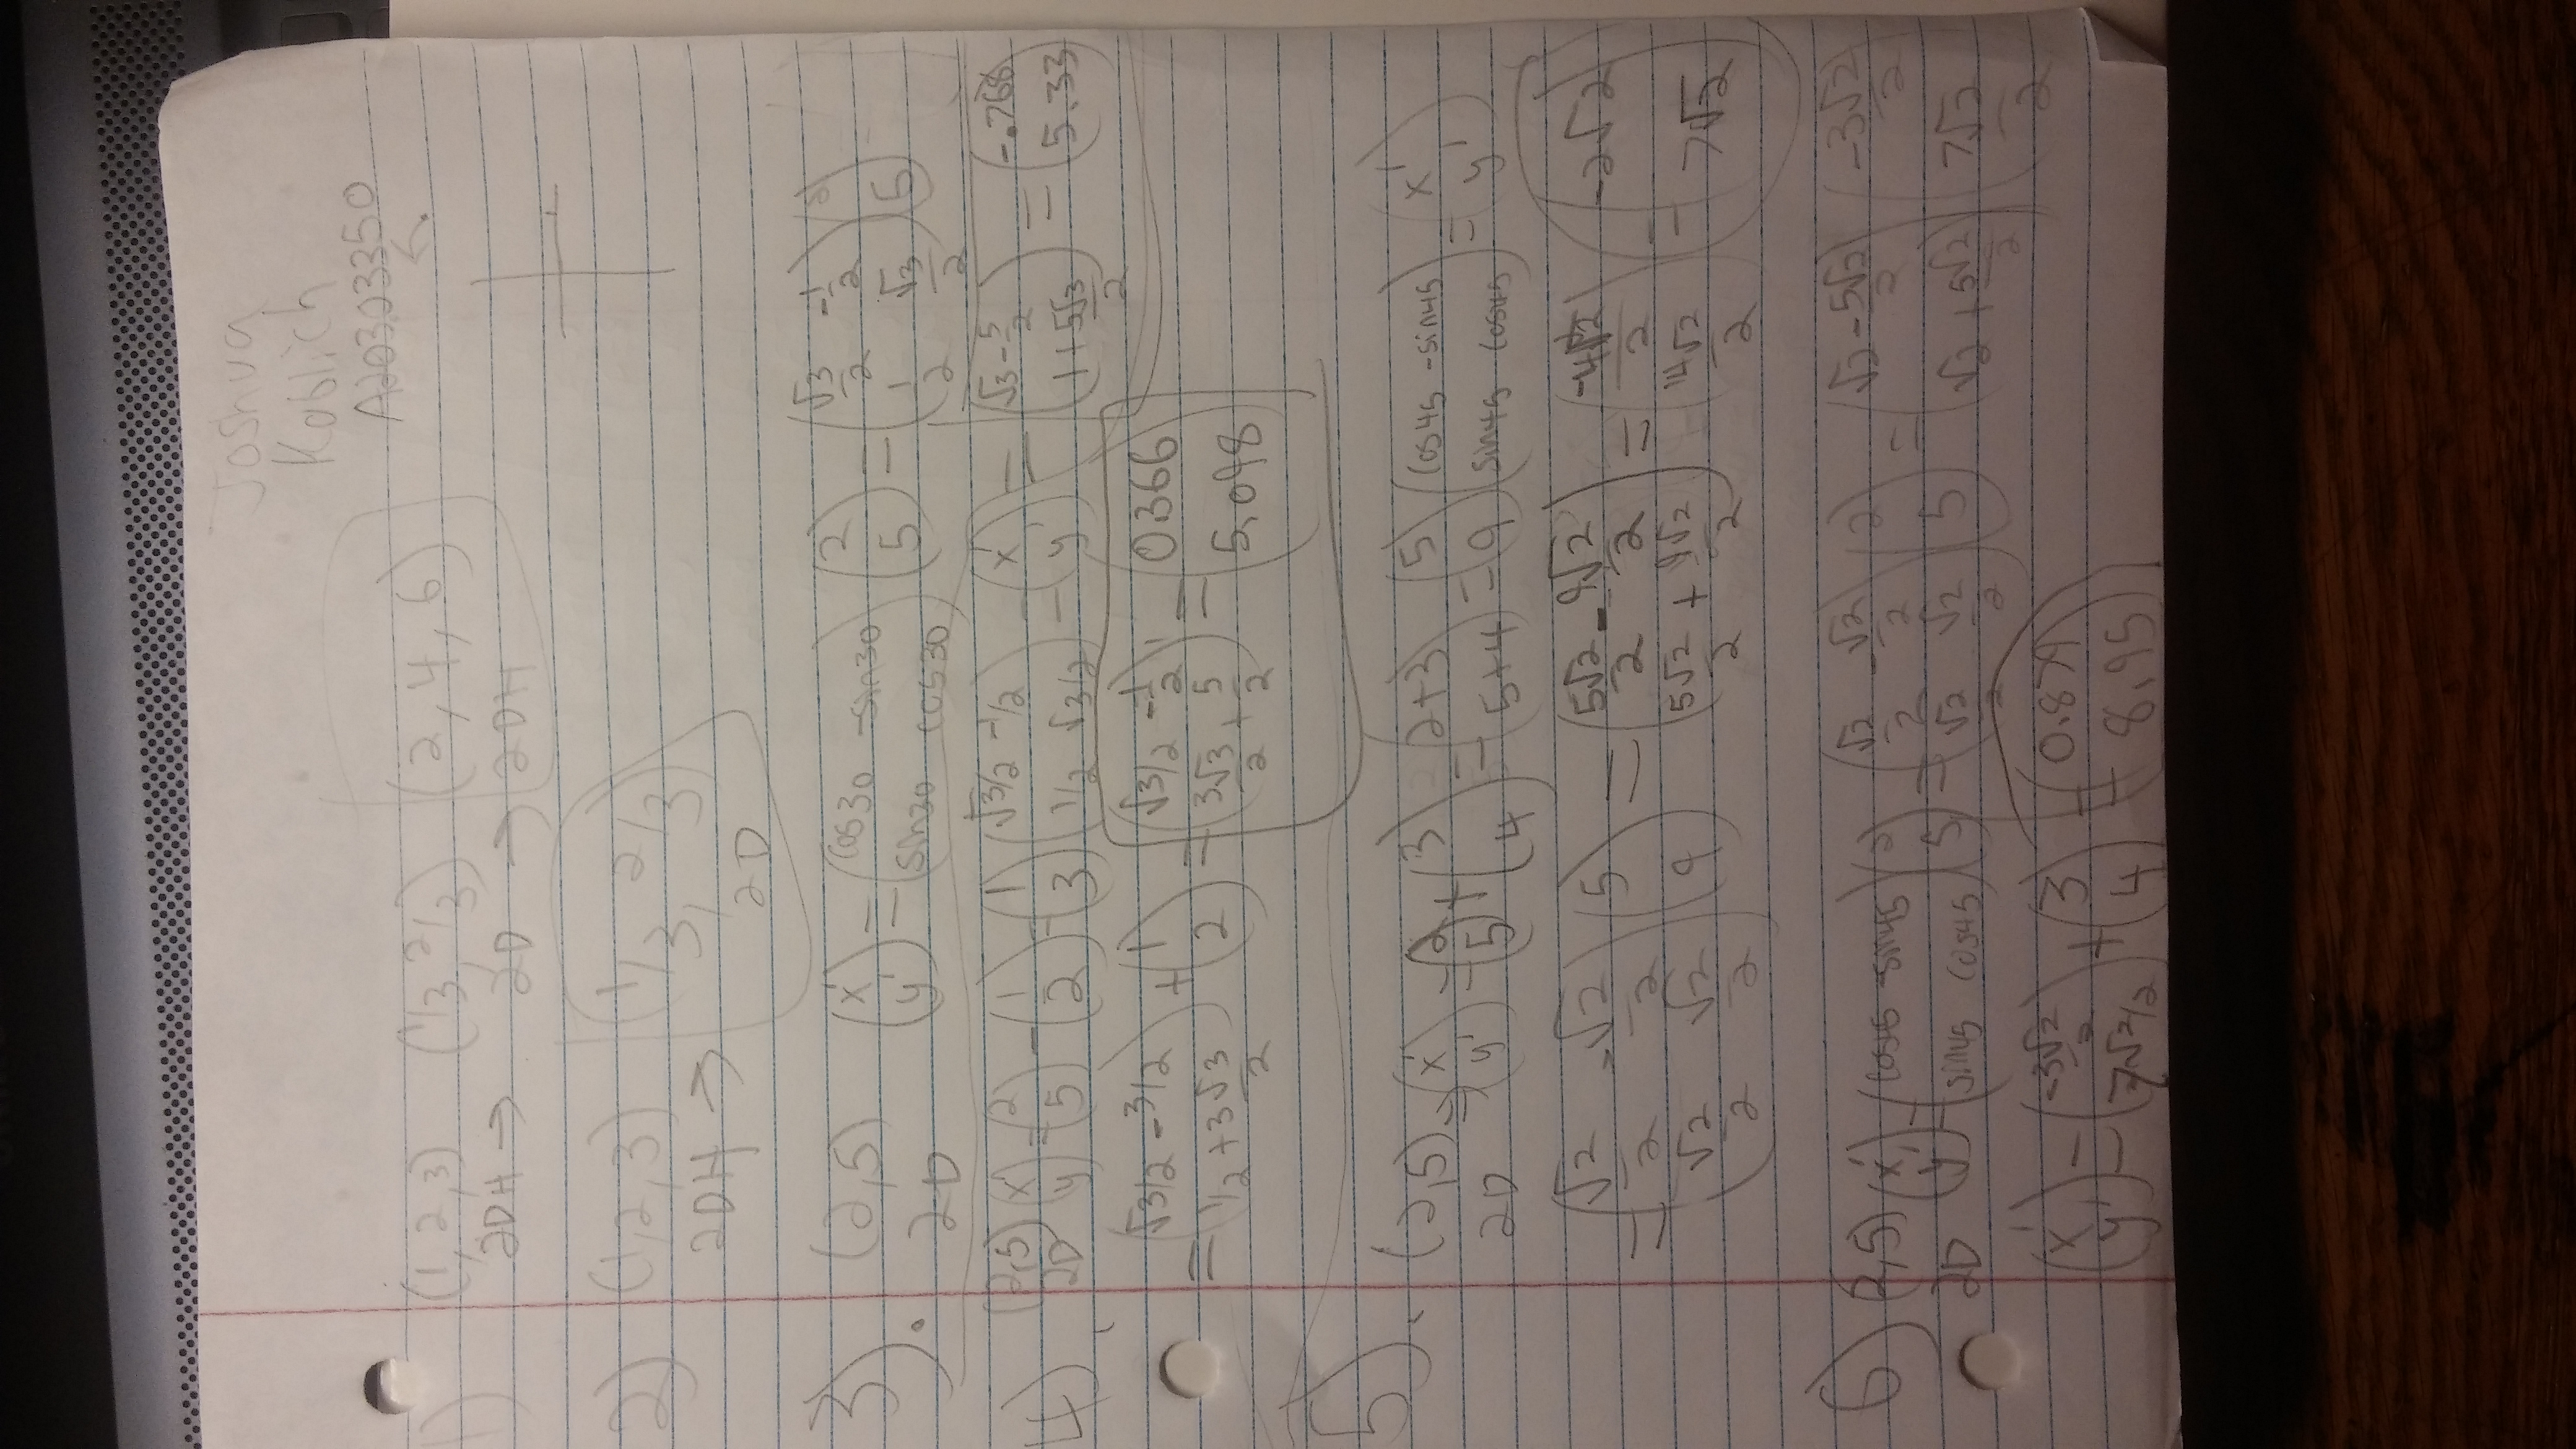 Joshua
Koblich
A20303350
1) (1, 2, 3) (1/3, 2/3) (2, 4, 6)
2DH → 2D → 2DH
2) (1, 2, 3) (1/3, 2/3)
2DH → 2D
3). (2,5) 2D (x' y') = (cos30 -sin30 sin30 cos30) (2 5) = (√3/2 -1/2 1/2 √3/2) (2 5)
= (√3 - 5/2 1 + 5√3/2) = (-.768 5.33)
4). (2,5) 2D (x y) = (2 5) - (1 2) = (1 3) (√3/2 -1/2 1/2 √3/2) = (x' y')
= (√3/2 - 3/2 1/2 + 3√3/2) + (1 2) = (√3/2 - 1/2 3√3/2 + 5/2) = (0.366 5.098)
5). (2,5) 2D = (x' y') = (2 5) + (3 4) = (2+3 5+4) = (5 9) (cos45 -sin45 sin45 cos45) = (x' y')
= (√2/2 -√2/2 √2/2 √2/2) (5 9) = (5√2/2 - 9√2/2 5√2/2 + 9√2/2) = (-4√2/2 14√2/2) = (-2√2 7√2)
6) (2,5) 2D (x' y') = (cos45 -sin45 sin45 cos45) (2 5) = (√2/2 -√2/2 √2/2 √2/2) (2 5) = (√2 - 5√2/2 √2 + 5√2/2) (-3√2/2 7√2/2)
(x' y') = (-3√2/2 7√2/2) + (3 4) = (0.879 8.95)